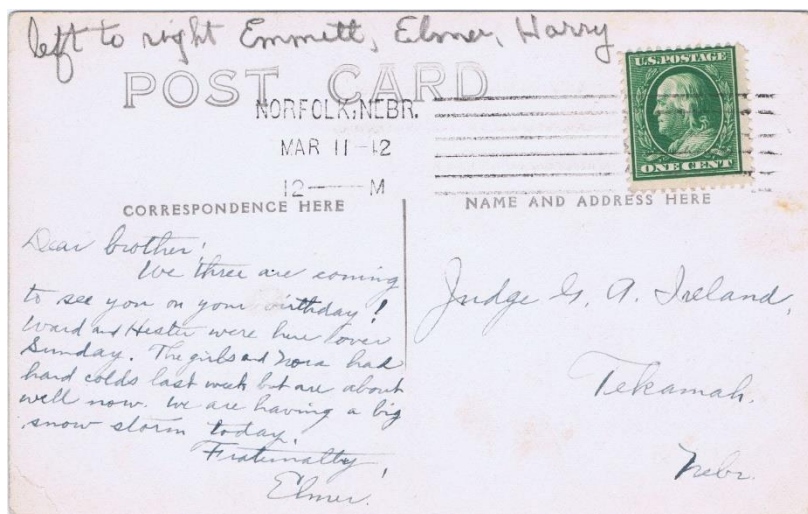 left to right Emmett, Elmer, Harry
POST CARD
U.S. POSTAGE
ONE CENT
NORFOLK, NEBR.
MAR 11-12
12——M
CORRESPONDENCE HERE
NAME AND ADDRESS HERE
Dear brother!
We three are coming
to see you on your birthday!
Ward and Hester were here over
Sunday. The girls and Nora had
hard colds last week but are about
well now. We are having a big
snow storm today.
Fraternally,
Elmer.
Judge G. A. Ireland,
Tekamah,
Nebr.